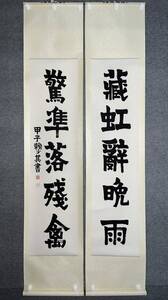 藏虹辭晚雨
驚準落殘禽
甲子其書